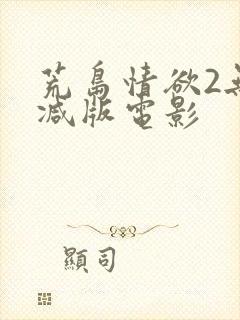 荒島情欲2
减版電影
顯司